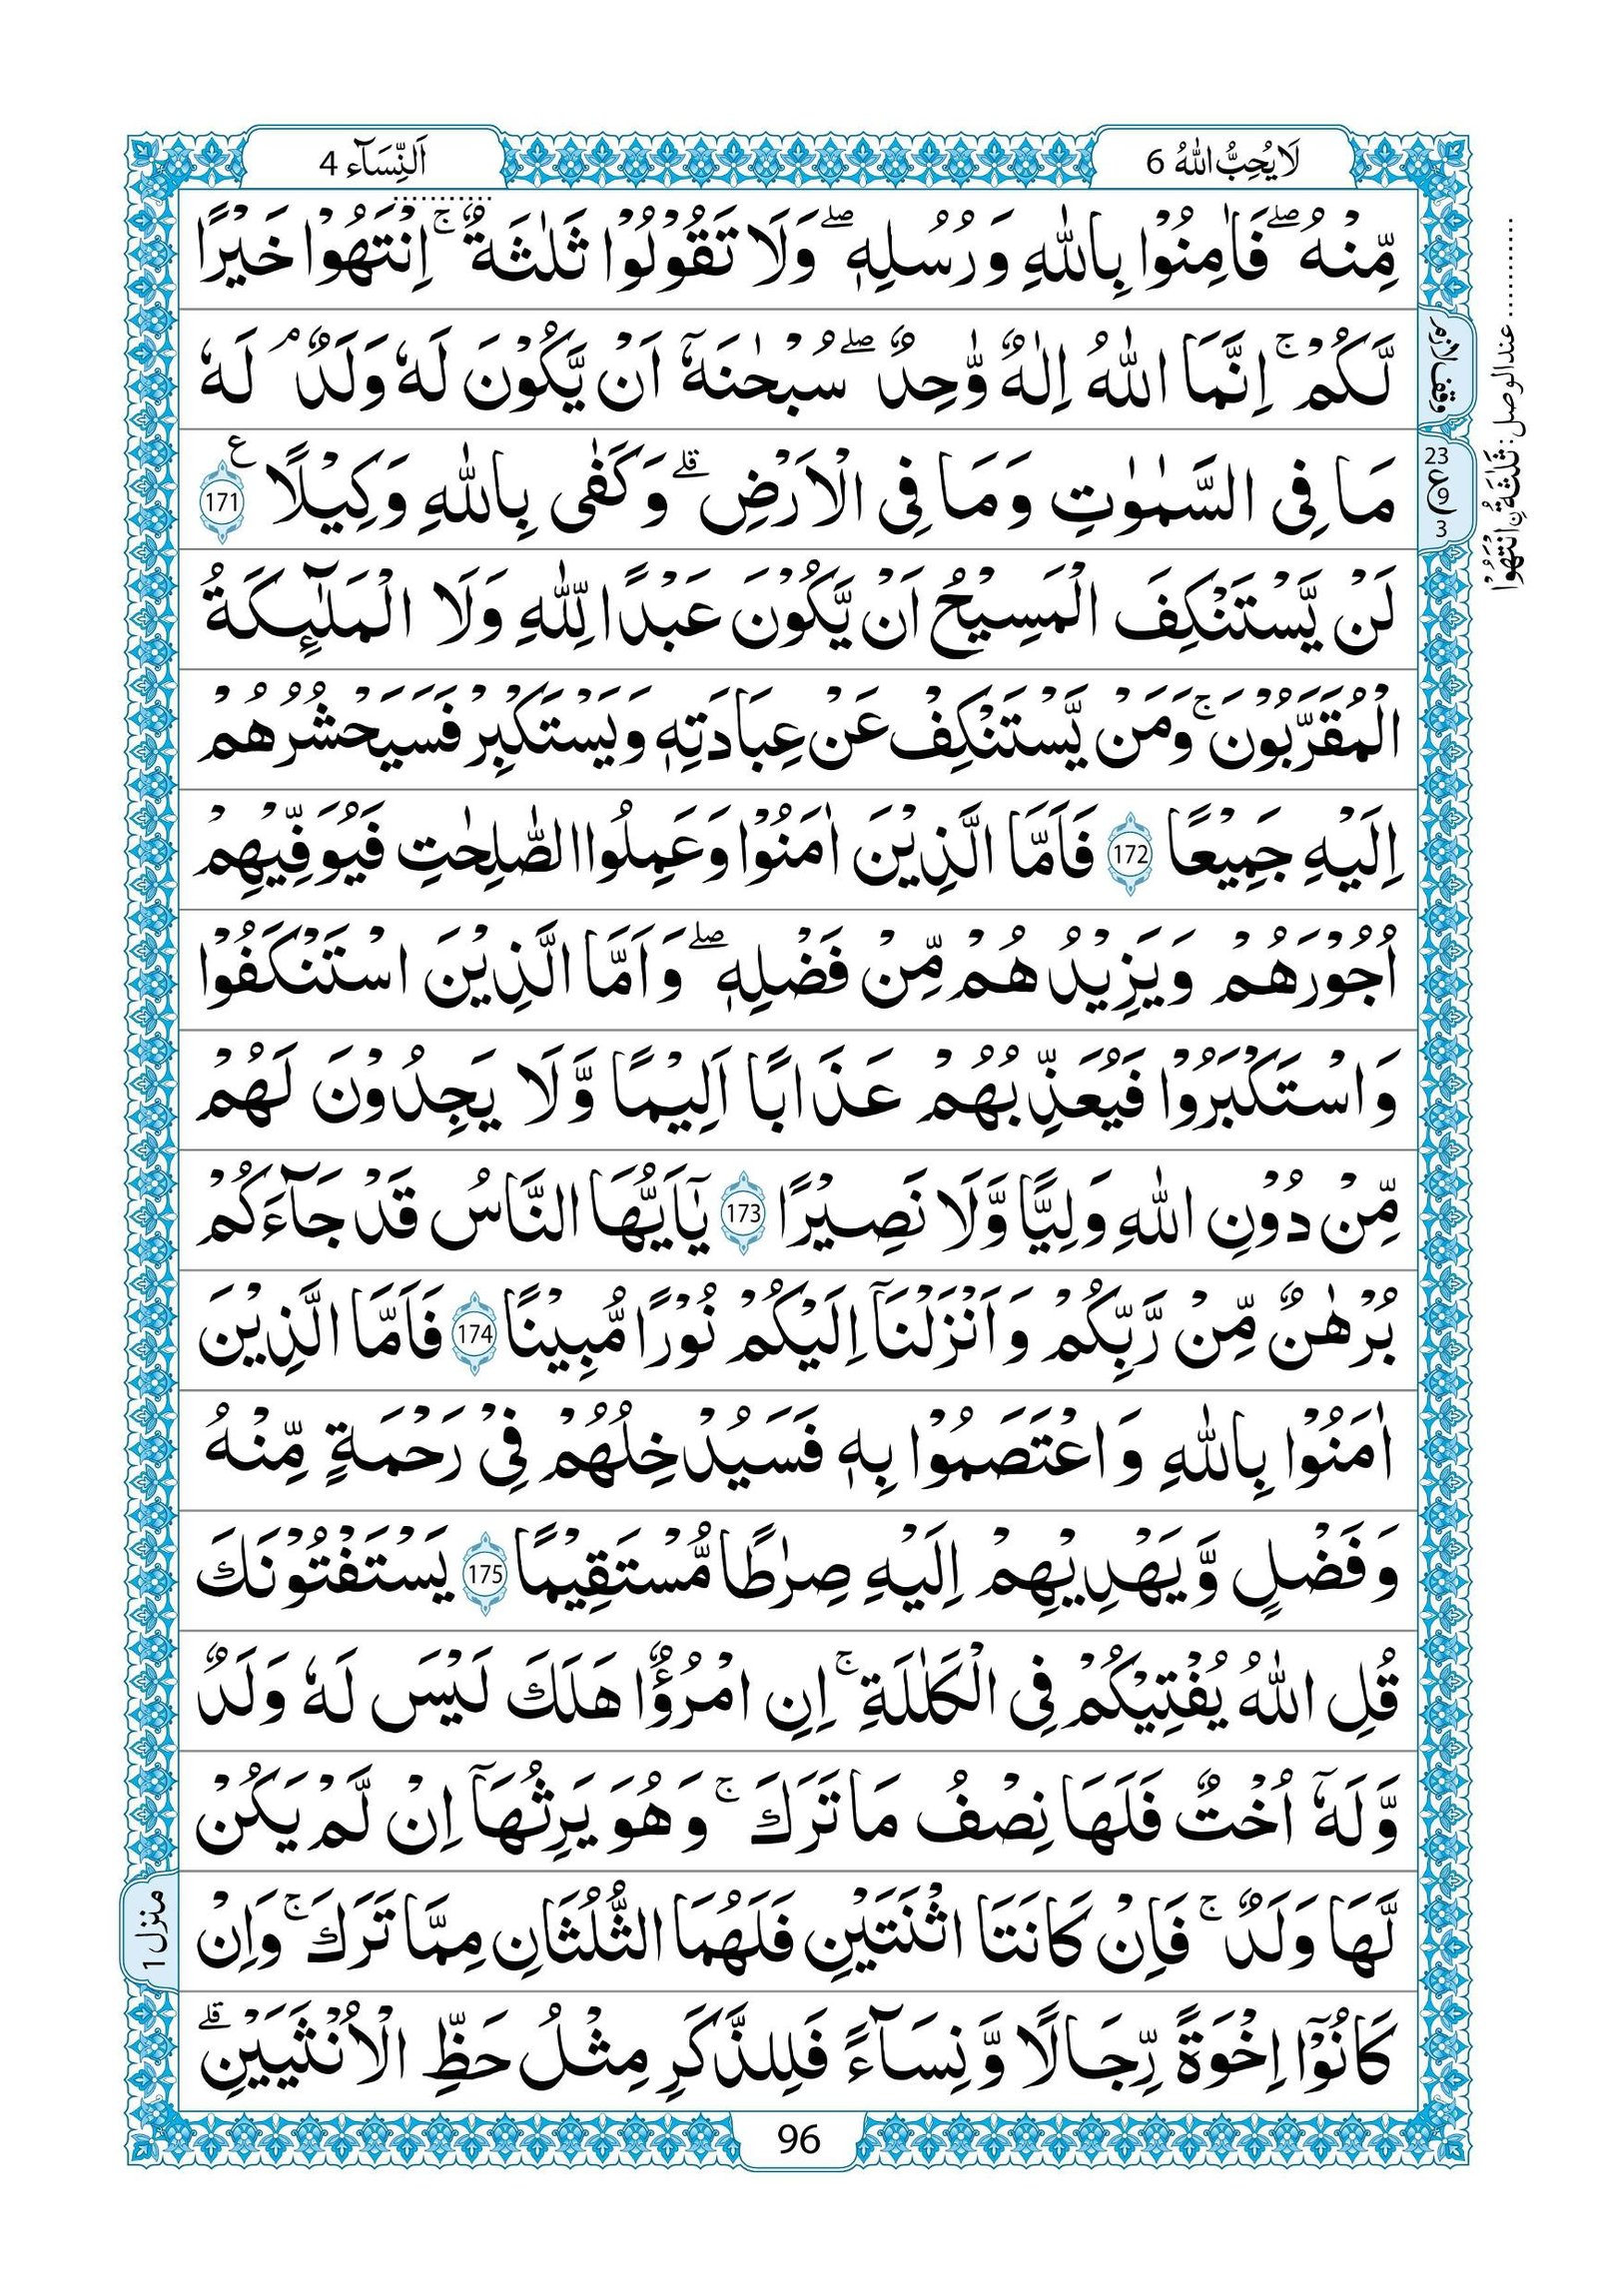 لَا يُحِبُّ اللّٰهُ 6
اَلنِّسَآء 4
مِّنْهُ ۖ فَاٰمِنُوْا بِاللّٰهِ وَرُسُلِهٖ ۖ وَلَا تَقُوْلُوْا ثَلٰثَةٌ ۚ اِنْتَهُوْا خَيْرًا
لَّكُمْ ۚ اِنَّمَا اللّٰهُ اِلٰهٌ وَّٰحِدٌ ۖ سُبْحٰنَهٗٓ اَنْ يَّكُوْنَ لَهٗ وَلَدٌ ۘ لَهٗ
مَا فِى السَّمٰوٰتِ وَمَا فِى الْاَرْضِ ۗ وَكَفٰى بِاللّٰهِ وَكِيْلًا ع 171
لَنْ يَّسْتَنْكِفَ الْمَسِيْحُ اَنْ يَّكُوْنَ عَبْدًا لِّلّٰهِ وَلَا الْمَلٰٓئِكَةُ
الْمُقَرَّبُوْنَ ۚ وَمَنْ يَّسْتَنْكِفْ عَنْ عِبَادَتِهٖ وَيَسْتَكْبِرْ فَسَيَحْشُرُهُمْ
اِلَيْهِ جَمِيْعًا 172 فَاَمَّا الَّذِيْنَ اٰمَنُوْا وَعَمِلُوا الصّٰلِحٰتِ فَيُوَفِّيْهِمْ
اُجُوْرَهُمْ وَيَزِيْدُهُمْ مِّنْ فَضْلِهٖ ۖ وَاَمَّا الَّذِيْنَ اسْتَنْكَفُوْا
وَاسْتَكْبَرُوْا فَيُعَذِّبُهُمْ عَذَابًا اَلِيْمًا وَّلَا يَجِدُوْنَ لَهُمْ
مِّنْ دُوْنِ اللّٰهِ وَلِيًّا وَّلَا نَصِيْرًا 173 يٰٓاَيُّهَا النَّاسُ قَدْ جَآءَكُمْ
بُرْهٰنٌ مِّنْ رَّبِّكُمْ وَاَنْزَلْنَآ اِلَيْكُمْ نُوْرًا مُّبِيْنًا 174 فَاَمَّا الَّذِيْنَ
اٰمَنُوْا بِاللّٰهِ وَاعْتَصَمُوْا بِهٖ فَسَيُدْخِلُهُمْ فِىْ رَحْمَةٍ مِّنْهُ
وَفَضْلٍ وَّيَهْدِيْهِمْ اِلَيْهِ صِرٰطًا مُّسْتَقِيْمًا 175 يَسْتَفْتُوْنَكَ
قُلِ اللّٰهُ يُفْتِيْكُمْ فِى الْكَلٰلَةِ ۚ اِنِ امْرُؤٌا هَلَكَ لَيْسَ لَهٗ وَلَدٌ
وَّلَهٗٓ اُخْتٌ فَلَهَا نِصْفُ مَا تَرَكَ ۚ وَهُوَ يَرِثُهَآ اِنْ لَّمْ يَكُنْ
لَّهَا وَلَدٌ ۚ فَاِنْ كَانَتَا اثْنَتَيْنِ فَلَهُمَا الثُّلُثَانِ مِمَّا تَرَكَ ۚ وَاِنْ
كَانُوْٓا اِخْوَةً رِّجَالًا وَّنِسَآءً فَلِلذَّكَرِ مِثْلُ حَظِّ الْاُنْثَيَيْنِ ۗ
وقف لازم
23 ع ٣
عند الوصل: ثَلٰثَةُ نِ انْتَهُوْا
منزل 1
96